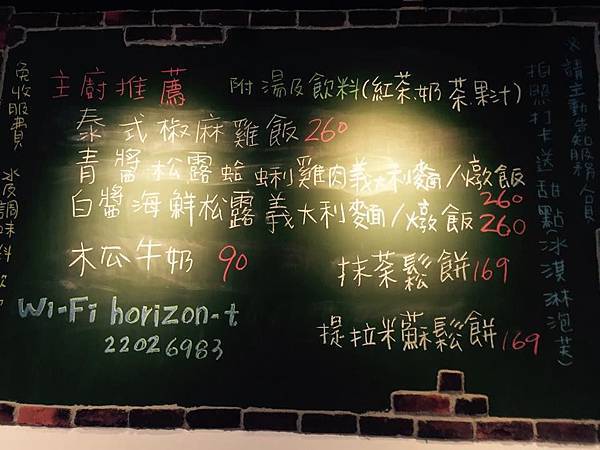 免收服費
主廚推薦 附湯及飲料(紅茶.奶茶.果汁)
泰式椒麻雞飯 260
青醬松露蛤蜊雞肉義大利麵/燉飯 260
白醬海鮮松露義大利麵/燉飯 260
木瓜牛奶 90
抹茶鬆餅 169
Wi-Fi horizon-t
22026983
提拉米蘇鬆餅 169
※請主動告知服務人員
拍照打卡送甜點(冰淇淋泡芙)